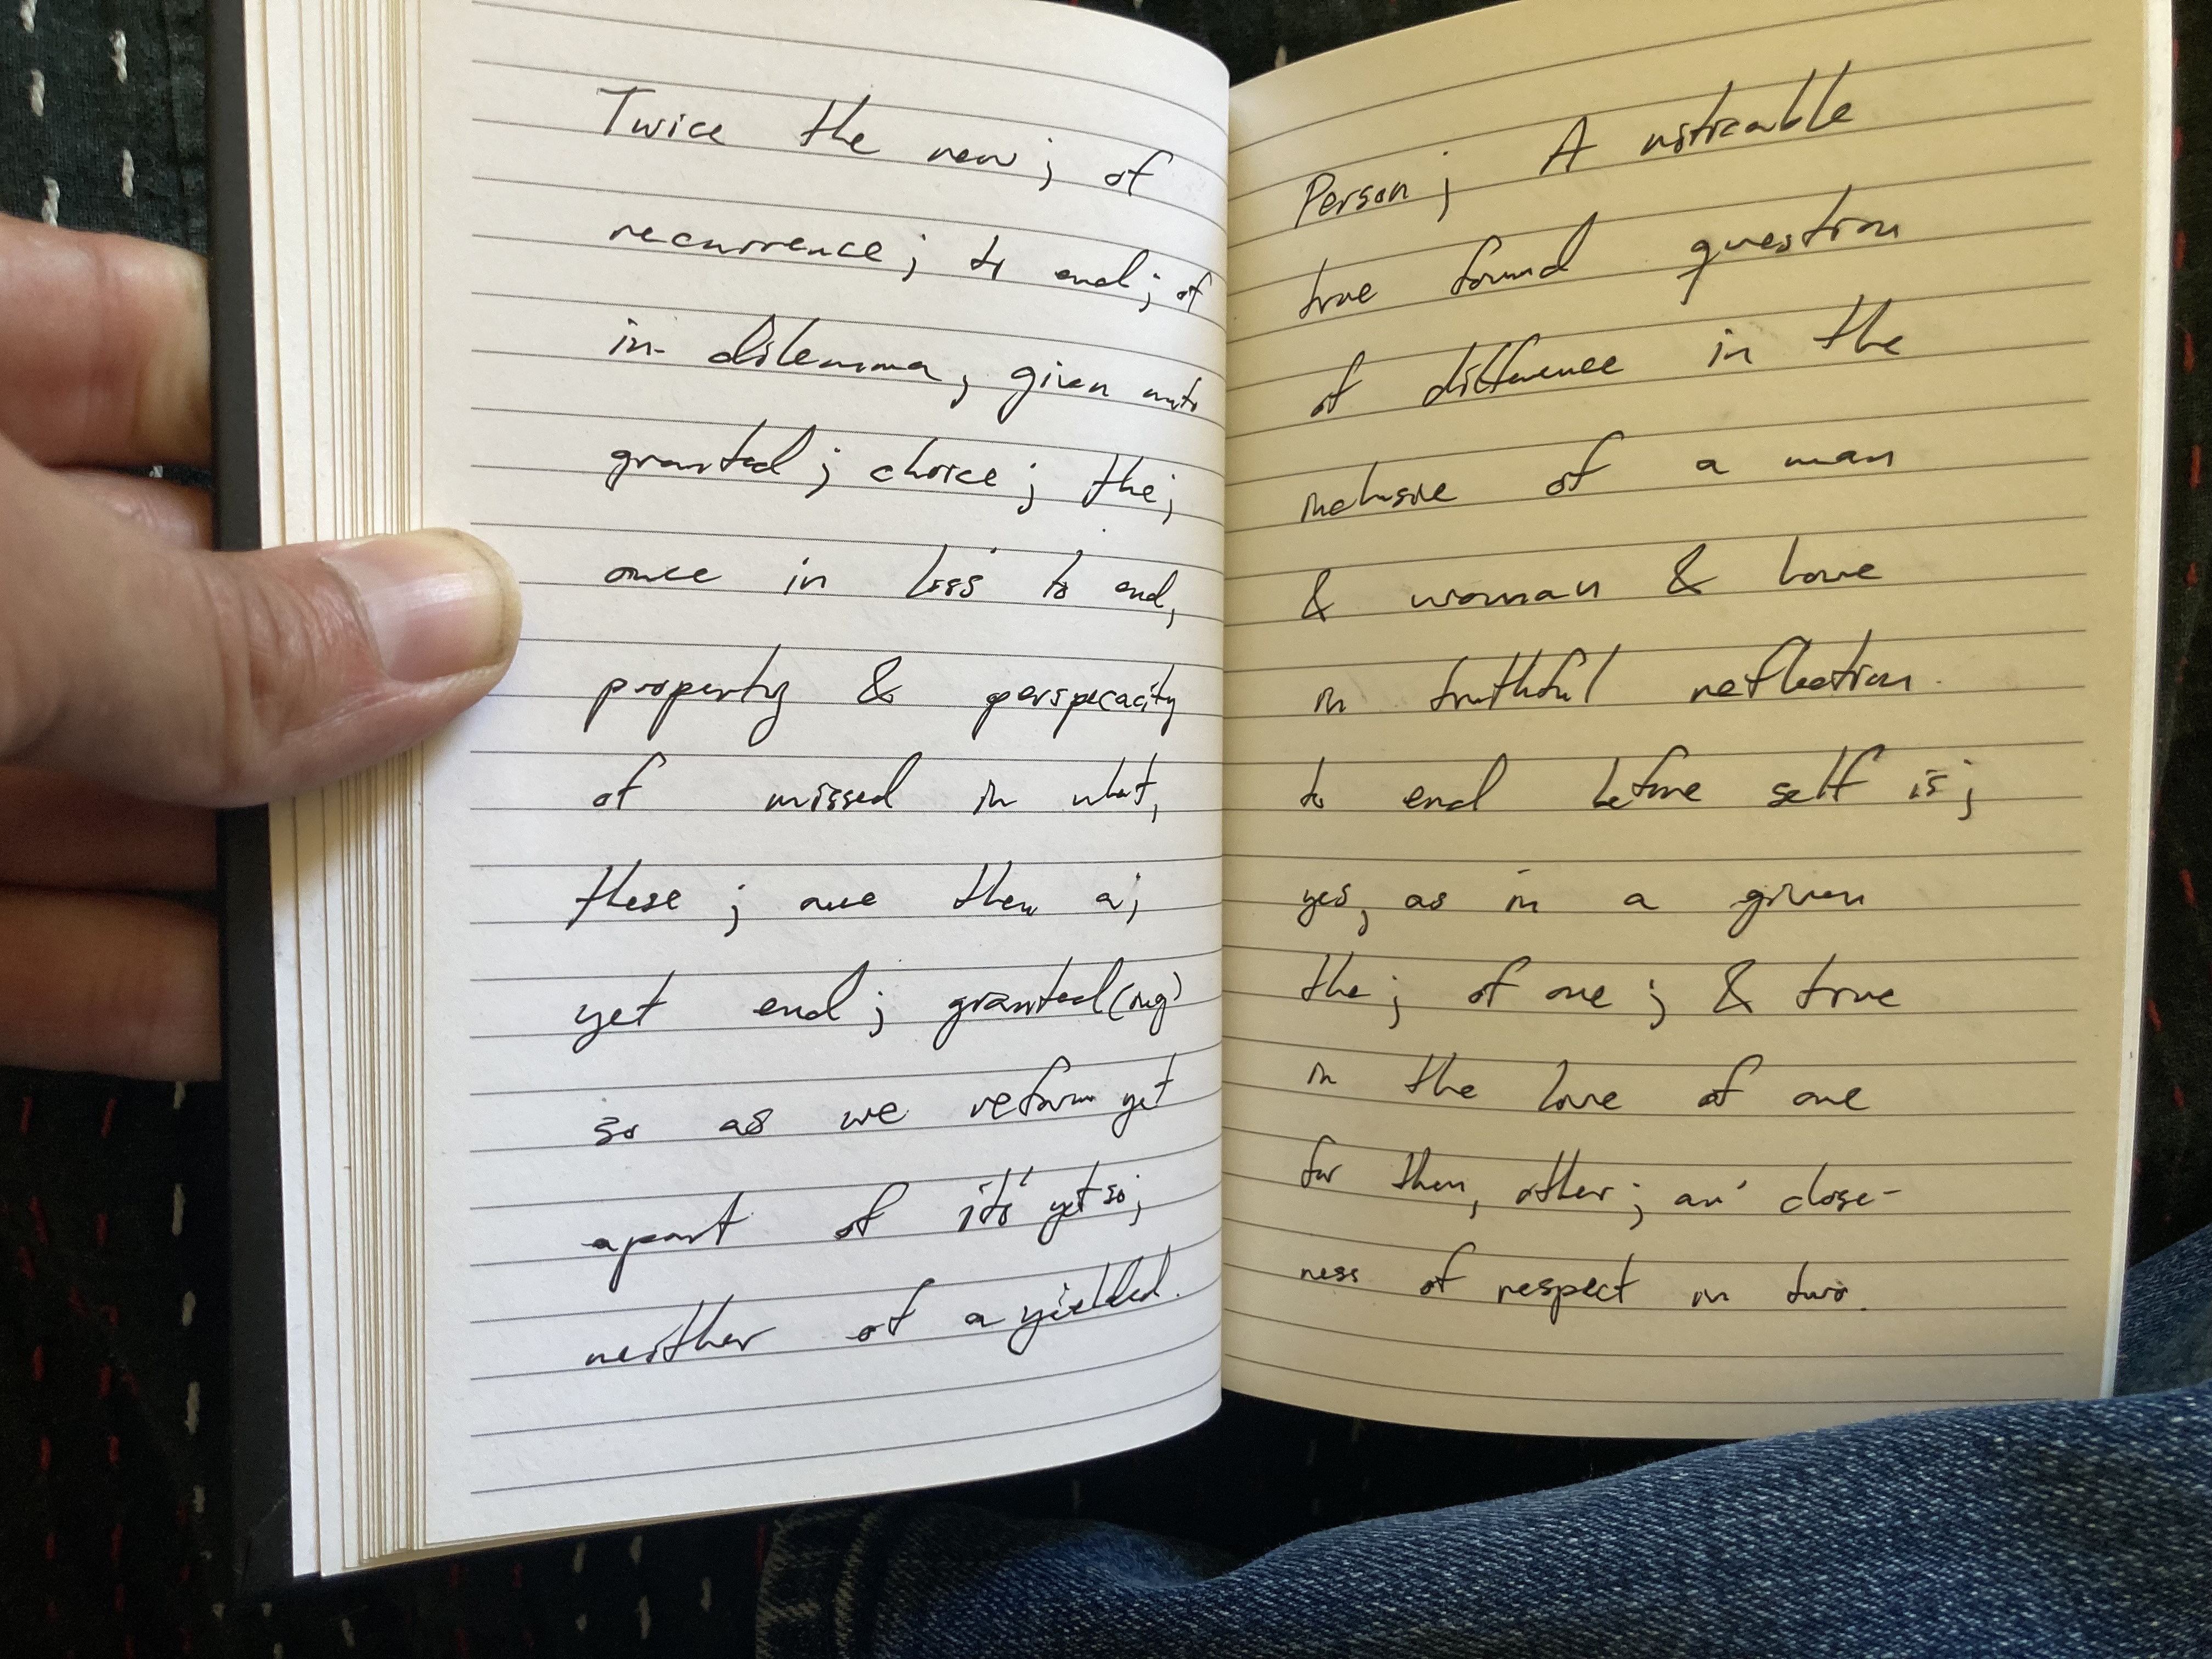 Twice the new; of
recurrence; to end; of
in- dilemma, given unto
granted; choice; the;
once in loss to end,
property & perspecacity
of missed in what,
these; one then a;
yet end; granted(ing)
so as we reform yet
apart of it's' yet so;
neither of a yielded.
Person; A noticable
true found question
of difference in the
inclusive of a man
& woman & love
in truthful reflection.
to end before self is;
yes, as in a given
the; of one; & true
in the love of one
for then, other; an' close-
ness of respect in two.